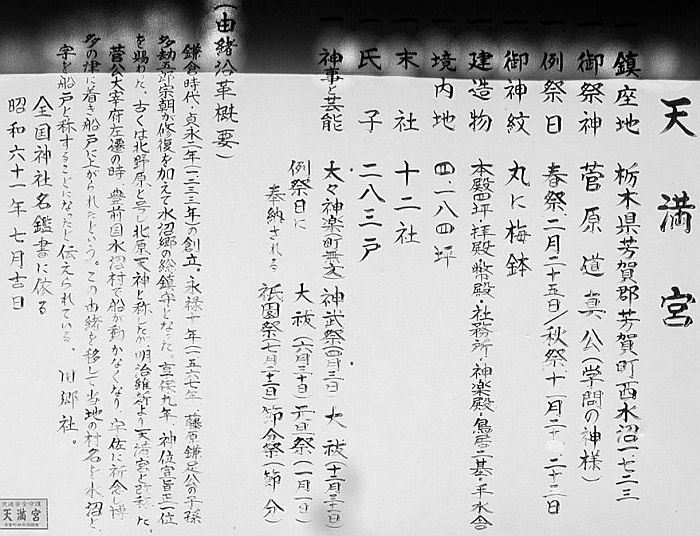 天満宮
一 鎮座地 栃木県芳賀郡芳賀町西水沼一七二三
一 御祭神 菅原道真公(学問の神様)
一 例祭日 春祭二月二十五日/秋祭十一月二十二、二十三日
一 御神紋 丸に梅鉢
一 建造物 本殿四坪・拝殿・幣殿・社務所・神楽殿・鳥居二基・手水舎
一 境内地 四、一八四坪
一 末社 十二社
一 氏子 二八三戸
一 神事と芸能 太々神楽(町無文)神武祭(四月三日)大祓(十二月三十一日)
例祭日に 大祓(六月三十日)元旦祭(一月一日)
奉納される 祇園祭(七月二十一日)節分祭(節分)
(由緒沿革概要)
鎌倉時代・貞永二年(一二三三年)の創立。永禄十年(一五六七年)藤原鎌足公の子孫
多劫五郎宗朝が修復を加えて水沼郷の総鎮守となった。享保九年、神位宣旨正一位
を賜わった。古くは北野原と号し北原天神と称したが明治維新より天満宮と改称した。
菅公大宰府左遷の時 豊前国水沼村で船が動かなくなり 宇佐に祈念し博
多の津に着き船戸に上がられたという。この由緒を移して当地の村名を水沼と、
字を船戸と称することになったと伝えられている。 旧郷社。
全国神社名鑑書に依る
昭和六十一年七月吉日
交通安全守護
天満宮